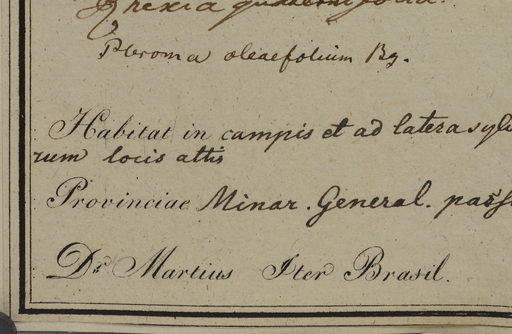 Rhexia
Pleroma oleaefolium Bg.
Habitat in campis et ad latera sylv
rum locis altis
Provinciae Minar. General. pas
Dr Martius Iter Brasil.